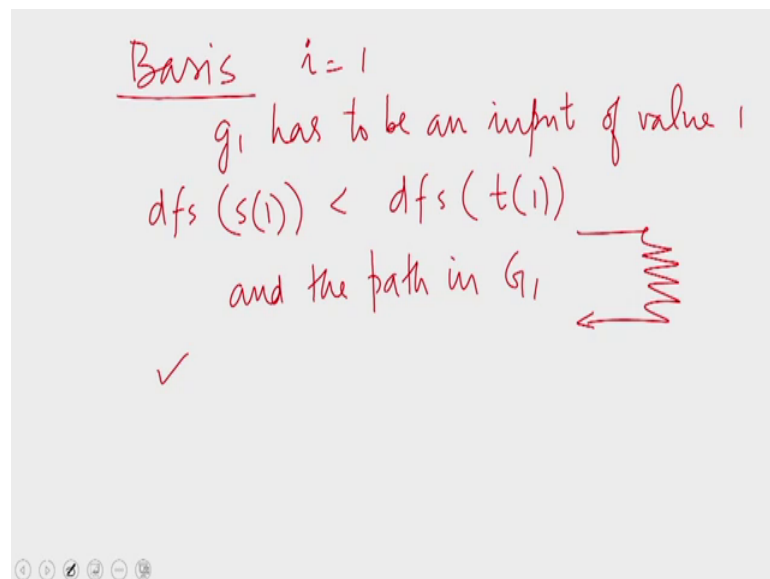 Basis i = 1
g₁ has to be an input of value 1
dfs (s(1)) < dfs (t(1))
and the path in G₁
✓